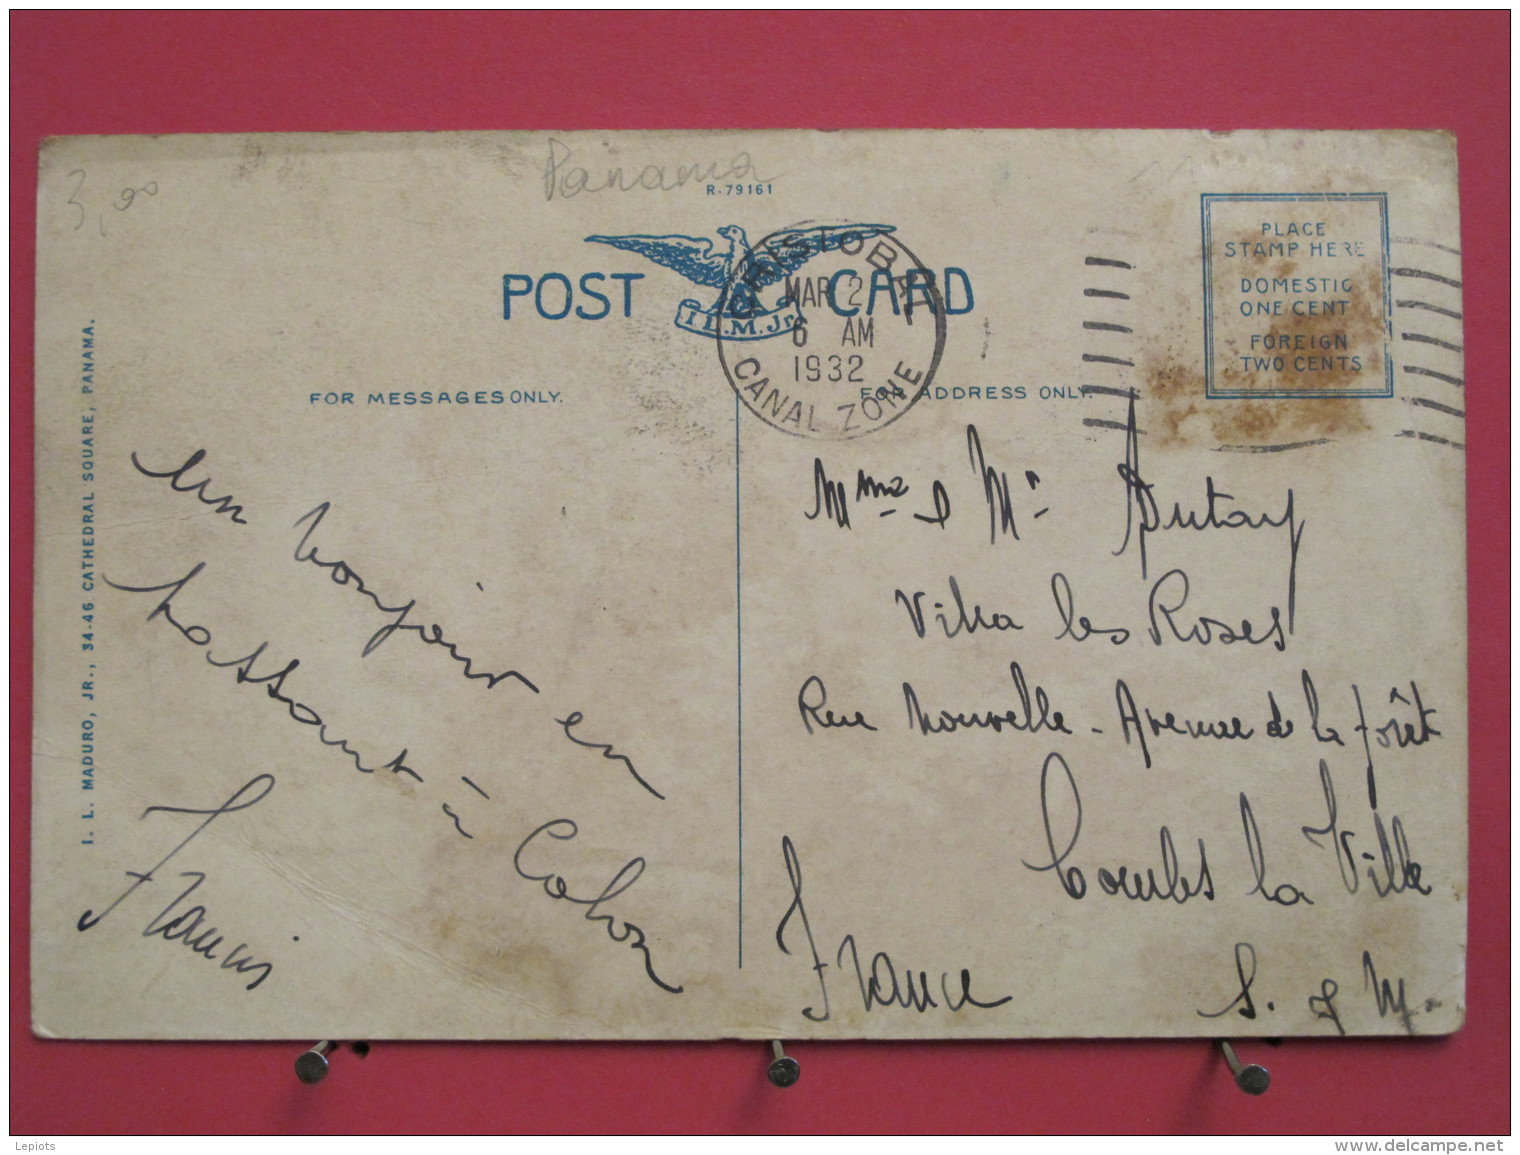 3,00
Panama
R-79161
POST CARD
I.L.M.Jr.
CRISTOBAL
MAR 2
6 AM
1932
CANAL ZONE
PLACE
STAMP HERE
DOMESTIC
ONE CENT
FOREIGN
TWO CENTS
FOR MESSAGES ONLY.
FOR ADDRESS ONLY.
I. L. MADURO, JR., 34-46 CATHEDRAL SQUARE, PANAMA.
un bonjour en
passant à Colon
Francis
Mme & Mr Autay
Villa les Roses
Rue Nouvelle - Avenue de la forêt
Combs la Ville
S. & M.
France
Lepiots
www.delcampe.net